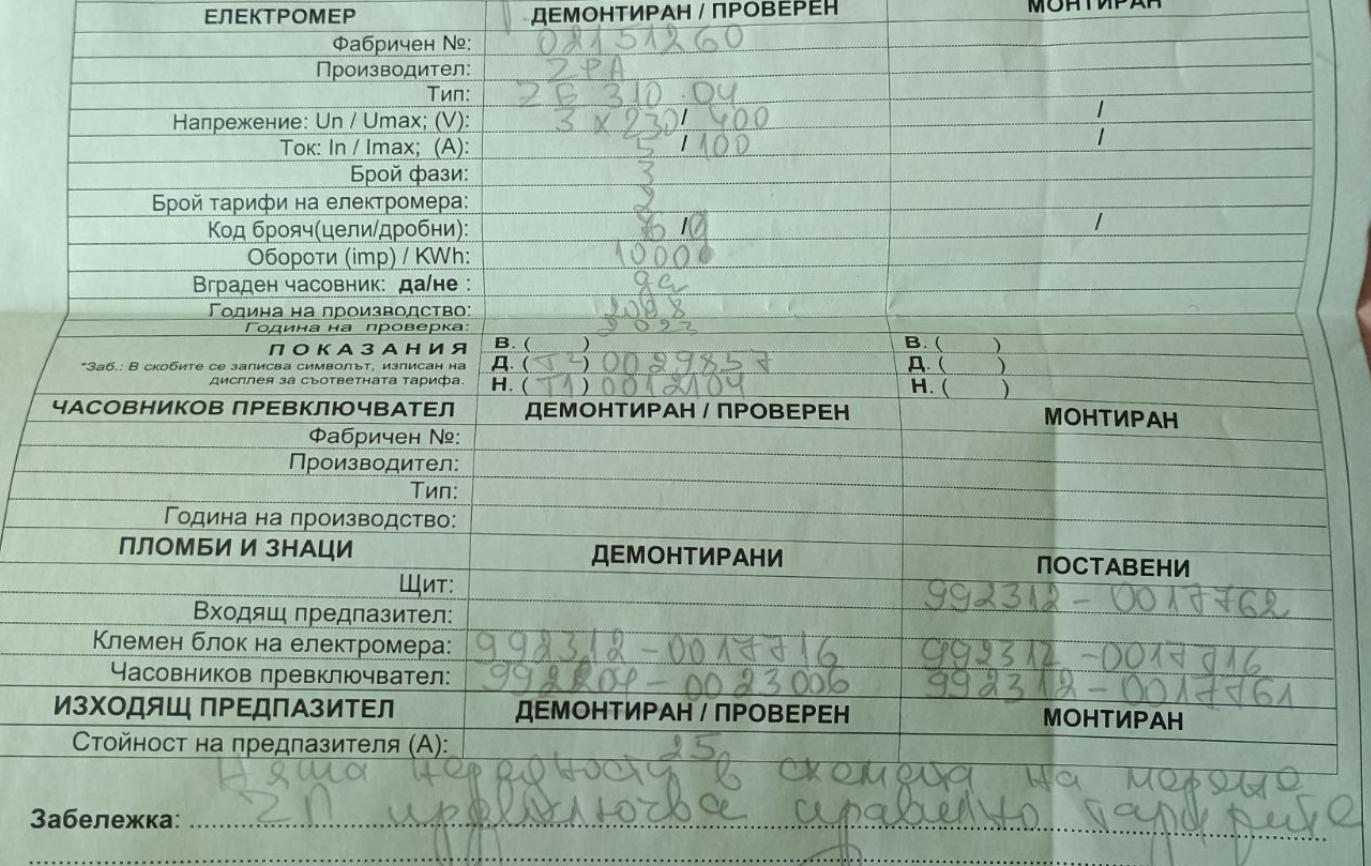 ЕЛЕКТРОМЕР ДЕМОНТИРАН / ПРОВЕРЕН МОНТИРАН
Фабричен №: 02151260
Производител: ZPA
Тип: ZE 310.04
Напрежение: Un / Umax; (V): 3 x 230 / 400 /
Ток: In / Imax; (A): 5 / 100 /
Брой фази: 3
Брой тарифи на електромера: 2
Код брояч(цели/дробни): / /
Обороти (imp) / KWh:
Вграден часовник: да/не : да
Година на производство:
Година на проверка: 2023
ПОКАЗАНИЯ В. ( ) В. ( )
*Заб.: В скобите се записва символът, изписан на Д. (Т2) 0029857 Д. ( )
дисплея за съответната тарифа. Н. (Т1) 0012104 Н. ( )
ЧАСОВНИКОВ ПРЕВКЛЮЧВАТЕЛ ДЕМОНТИРАН / ПРОВЕРЕН МОНТИРАН
Фабричен №:
Производител:
Тип:
Година на производство:
ПЛОМБИ И ЗНАЦИ ДЕМОНТИРАНИ ПОСТАВЕНИ
Щит: 992312-0017762
Входящ предпазител:
Клемен блок на електромера: 992312-0017716 992312-0017716
Часовников превключвател: 992201-0023006 992312-0017761
ИЗХОДЯЩ ПРЕДПАЗИТЕЛ ДЕМОНТИРАН / ПРОВЕРЕН МОНТИРАН
Стойност на предпазителя (А): 25
Няма нередности в схемата на мерене
Забележка: ЧП превключва правилно тарифите